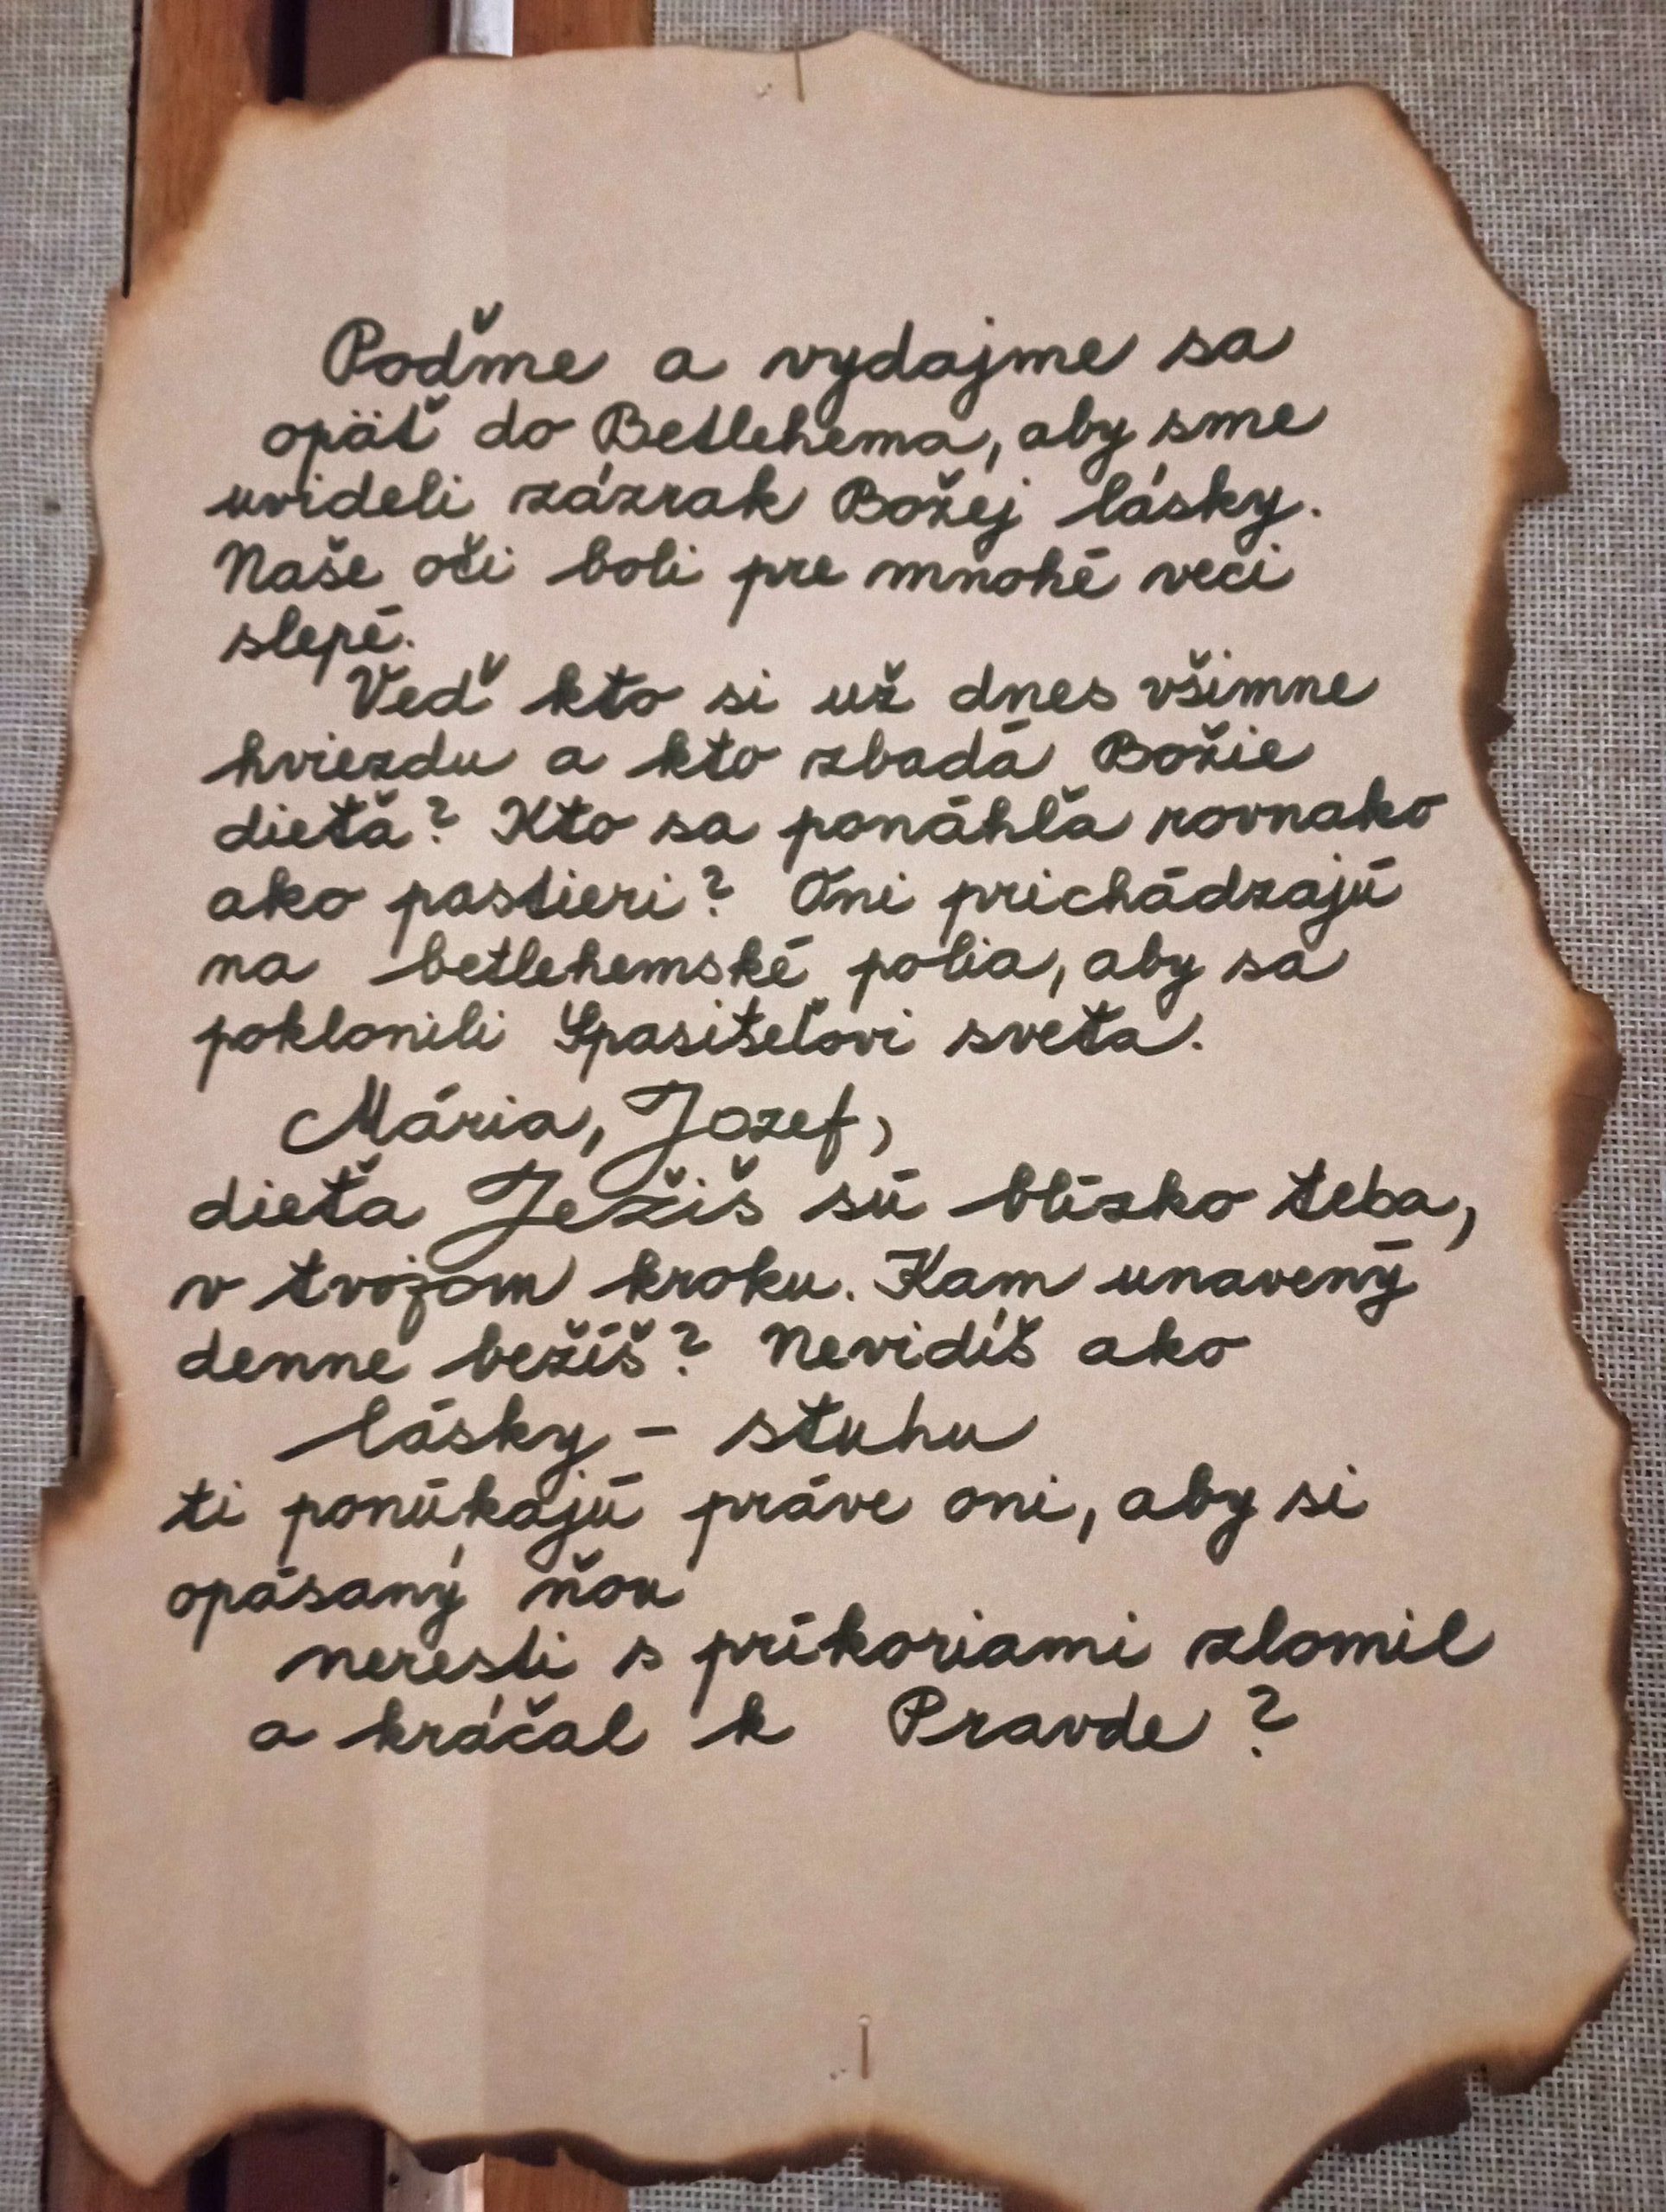 Poďme a vydajme sa
opäť do Betlehema, aby sme
uvideli zázrak Božej lásky.
Naše oči boli pre mnohé veci
slepé.
Veď kto si už dnes všimne
hviezdu a kto zbadá Božie
dieťa? Kto sa ponáhľa rovnako
ako pastieri? Oni prichádzajú
na betlehemské polia, aby sa
poklonili Spasiteľovi sveta.
Mária, Jozef,
dieťa Ježiš sú blízko teba,
v tvojom kroku. Kam unavený
denne bežíš? Nevidíš ako
lásky - stuhu
ti ponúkajú práve oni, aby si
opásaný ňou
neresti s príkoriami zlomil
a kráčal k Pravde?